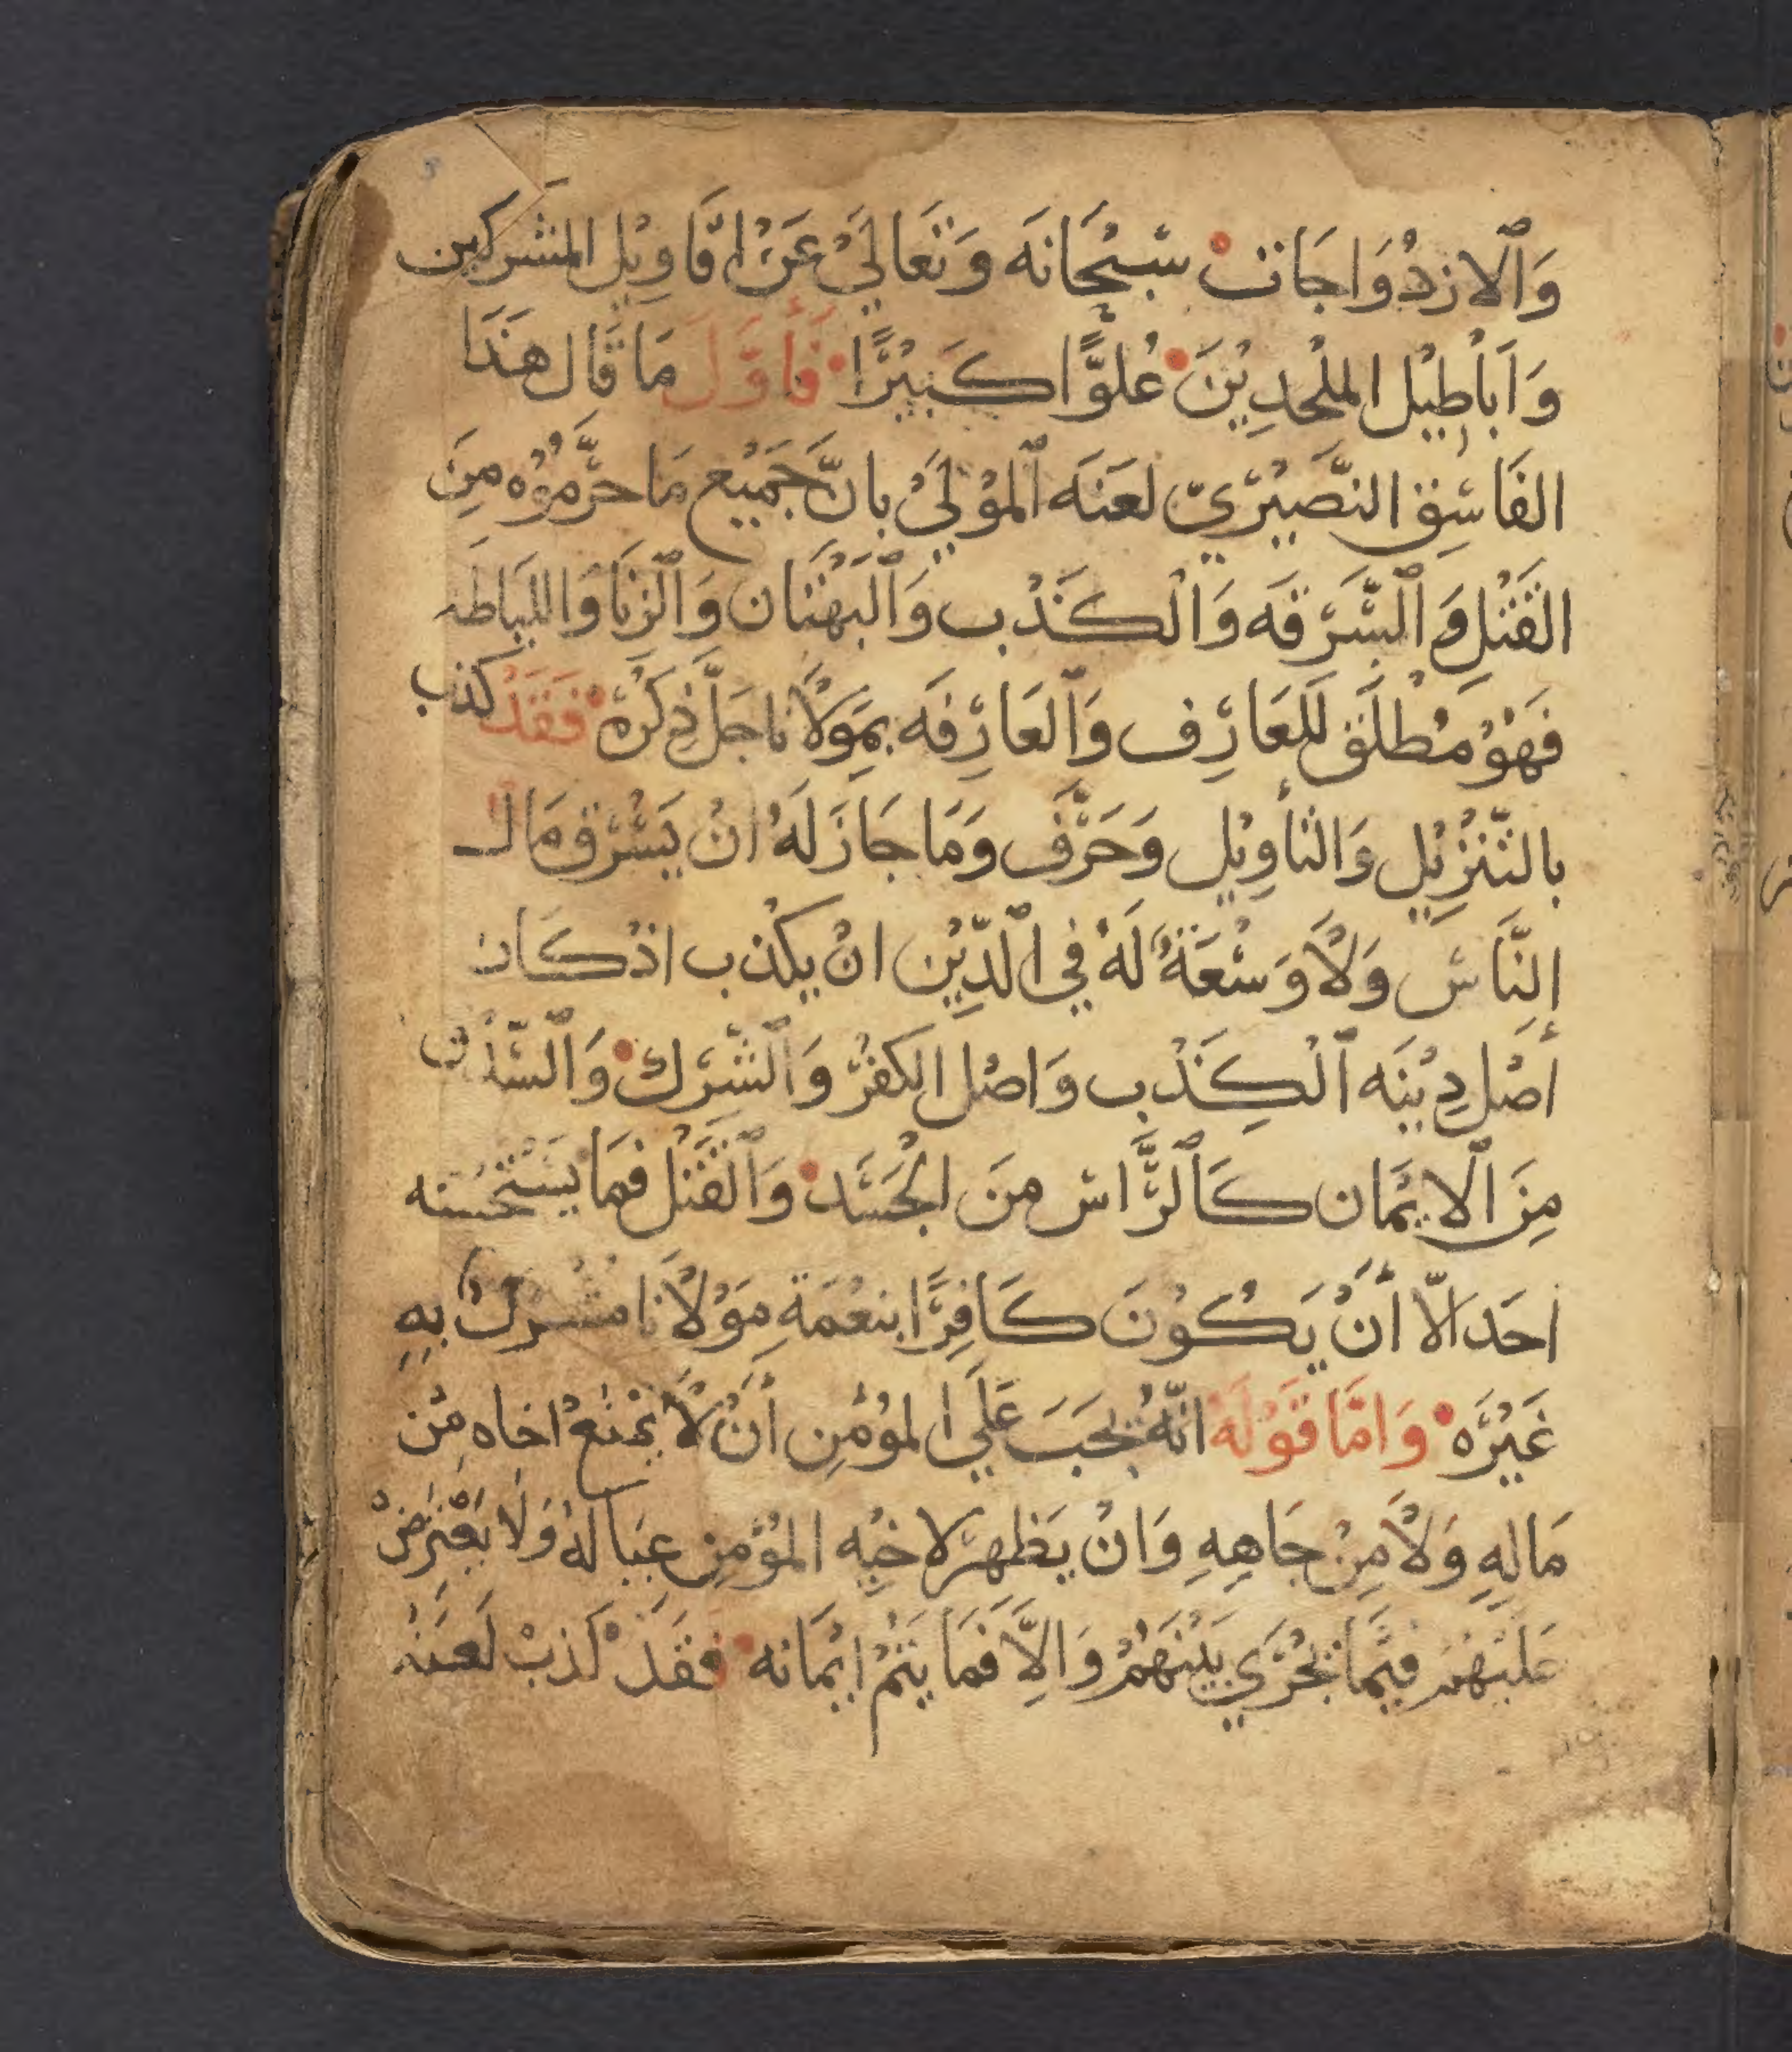 وَالازدُوَاجَات سُبْحَانَه وَتَعَالَىْ عَنْ اقَاوِيْل المشركين
وَاَبَاْطِيْل الملْحدِيْنَ عُلوًّا كَبيْرًا فَأوَّلَ مَا قَال هَذَا
الفَاسِق النصَّيْرَيّ لعَنَه المَوْلَيْ بانَّ جَمَيْع مَا حرَّموُه مِنَ
القَتْلِ وَالسَّرَقَه وَالْكَذْب وَالْبَهْتَان وَالزنَا وَاللياطَه
فَهْوْ مُطْلَق للعَارِف وَالعَارِفَه بمَوَلْانا جَلَّ ذِكْرَهْ فَقَدْ كَذب
بالتَّنْزِيْل وَالتأوِيْل وَحَرَّفَ وَمَا جَازَ لَهُ انْ يَسْرَق مَالـ
النَّاسْ وَلْا وَسْعَةٌ لَهُ في الدِّيْن انْ يكْذب اذْ كَان
أصْل دِيْنَه الْكِذْب وَاصْل الكفْرْ وَالشَّرَك وَالسَّدْق
مِنَ الايمَان كَالرَّاسْ منَ الجْسَد وَالقَتْل فمَا يَسْتحْسنه
احَد الّا أنْ يَكُوْنَ كَافِرًا بنعْمَةِ مَوْلْانا مشْرك بهِ
غَيْرَه وَامَّا قَوْلَهُ انّهُ يجَبَ عَلَي المؤْمِن أنْ لْا يمْنَعْ اخاه مِنْ
مَالِهِ وَلْا مِنْ جَاهِهِ وَانْ يَظهرْ لاخيْه المؤْمِن عيَالهُ وَلَا يعْترضْ
عَليْهْم فيْمَا يجْرَيْ بَيْنَهُمْ وَالِّا فَمَا يَتمْ ايْمَانه فَقَدْ كَذبْ لَعَنَهُ